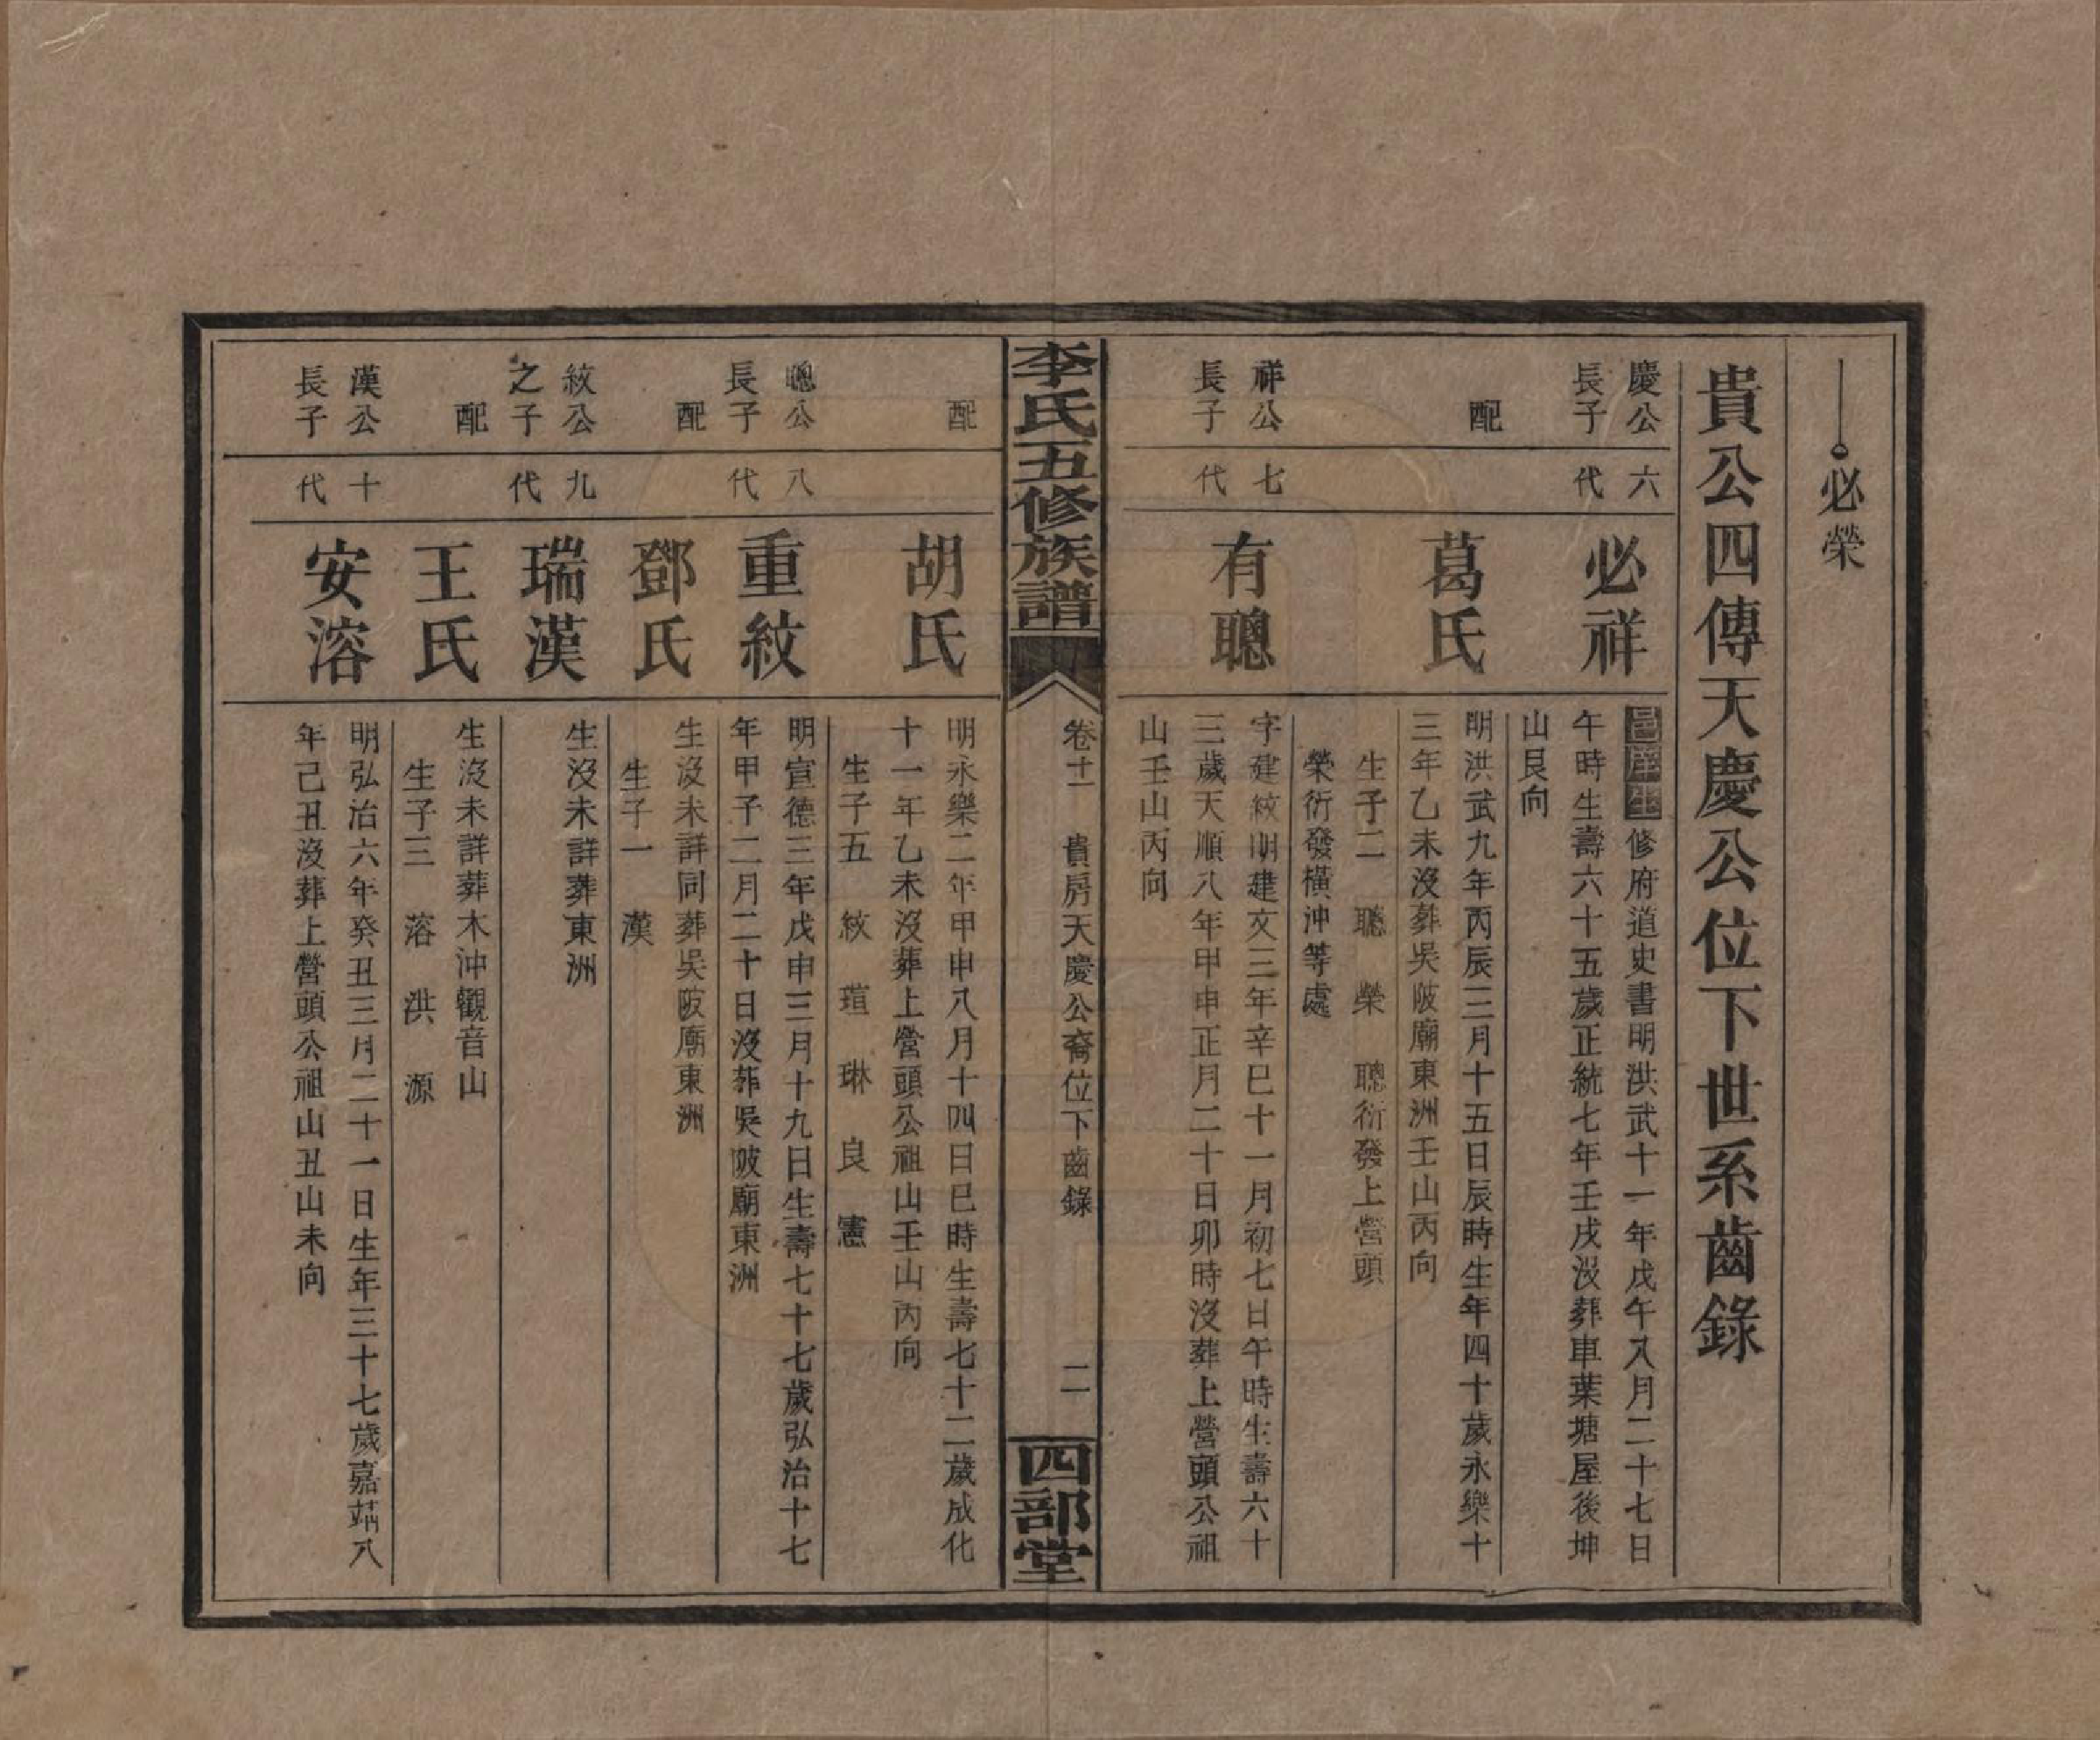 必榮
貴公四傳天慶公位下世系齒錄
慶公
長子
六
代
必祥
邑庠生修府道史書明洪武十一年戊午八月二十七日
午時生壽六十五歲正統七年壬戌沒葬車葉塘屋後坤
山艮向
配
葛氏
明洪武九年丙辰三月十五日辰時生年四十歲永樂十
三年乙未沒葬吳陂廟東洲壬山丙向
生子二 聰 榮 聰衍發上營頭
榮衍發橫沖等處
祥公
長子
七
代
有聰
字建紋明建文三年辛巳十一月初七日午時生壽六十
三歲天順八年甲申正月二十日卯時沒葬上營頭公祖
山壬山丙向
李氏五修族譜
卷十一 貴房天慶公裔位下齒錄
二
四部堂
配
胡氏
明永樂二年甲申八月十四日巳時生壽七十二歲成化
十一年乙未沒葬上營頭公祖山壬山丙向
生子五 紋 瑄 琳 良 憲
聰公
長子
八
代
重紋
明宣德三年戊申三月十九日生壽七十七歲弘治十七
年甲子二月二十日沒葬吳陂廟東洲
配
鄧氏
生沒未詳同葬吳陂廟東洲
生子一 漢
紋公
之子
九
代
瑞漢
生沒未詳葬東洲
配
王氏
生沒未詳葬木沖觀音山
生子三 溶 洪 源
漢公
長子
十
代
安溶
明弘治六年癸丑三月二十一日生年三十七歲嘉靖八
年己丑沒葬上營頭公祖山丑山未向